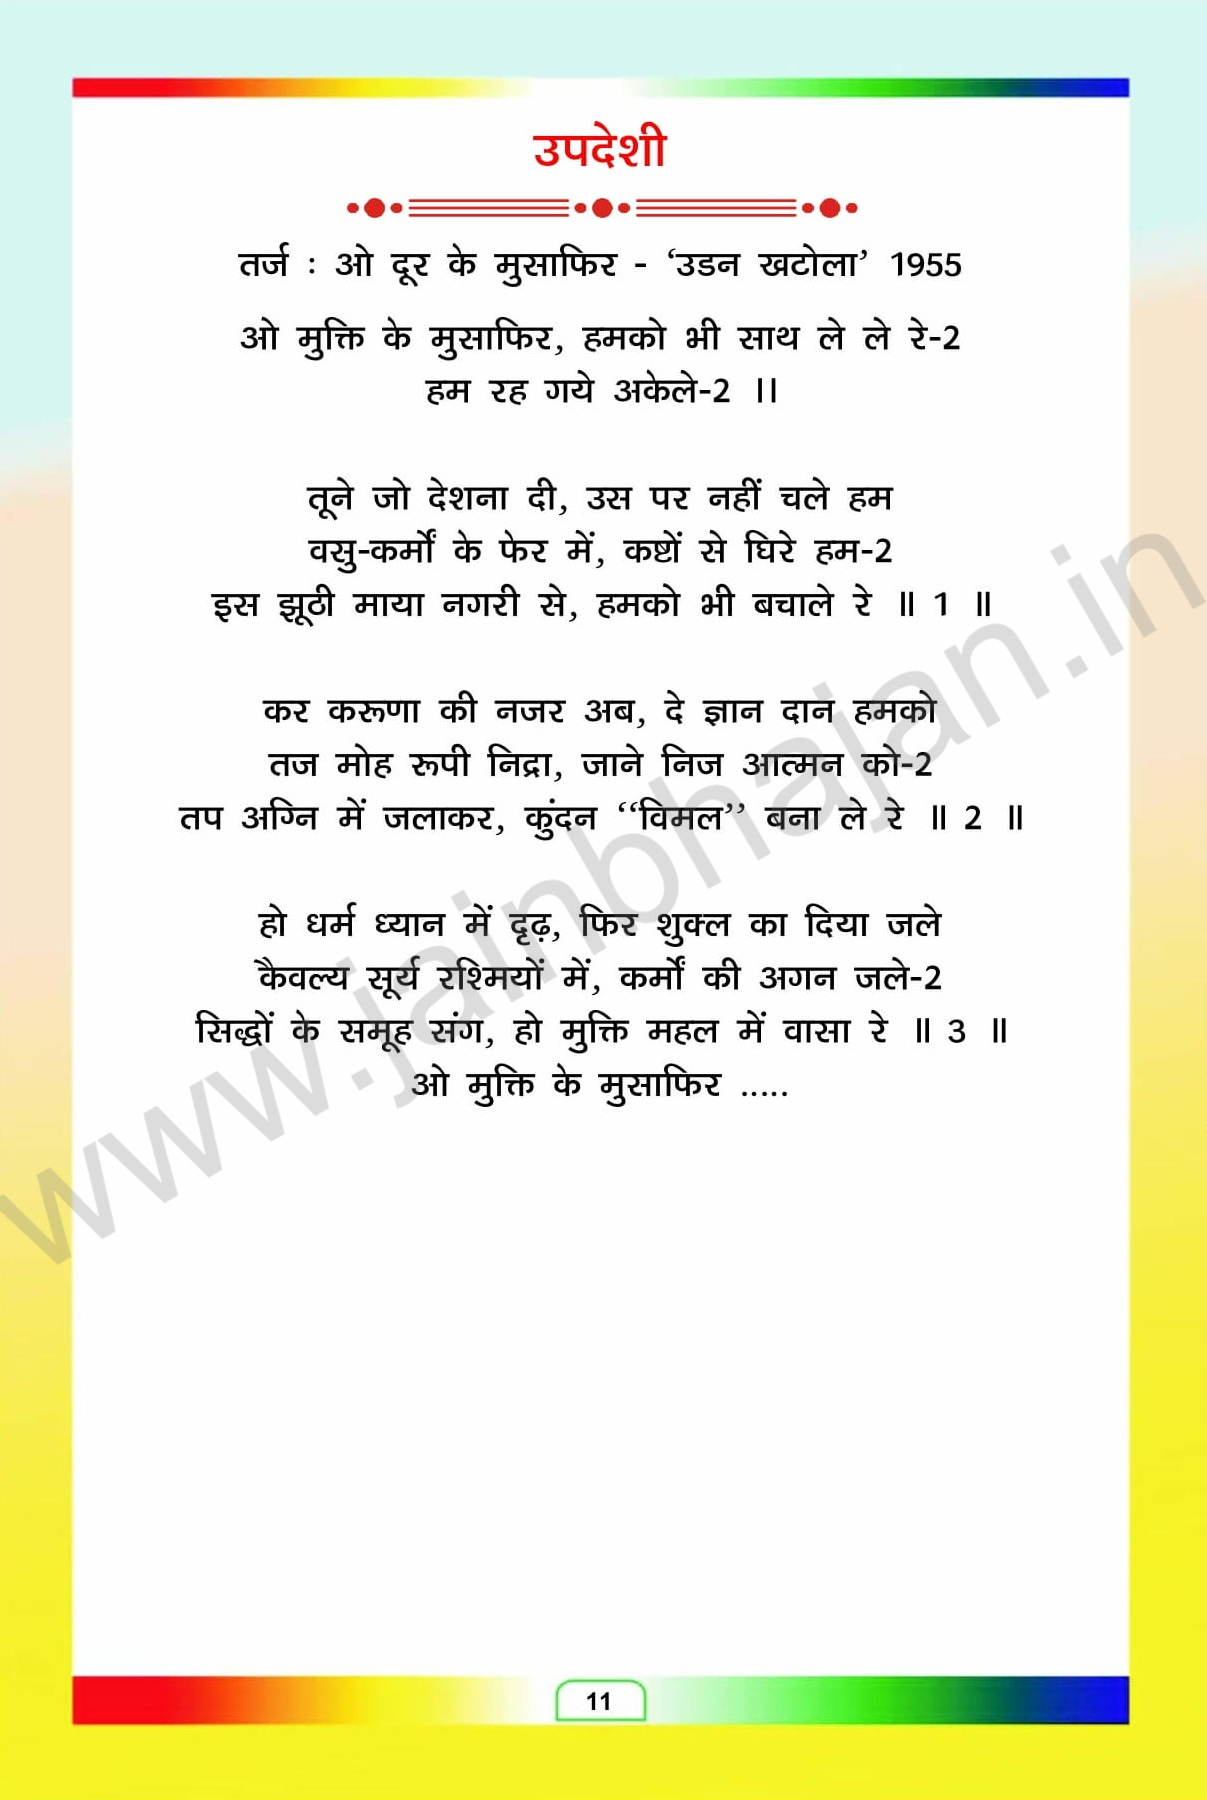 उपदेशी
तर्ज : ओ दूर के मुसाफिर - ‘उडन खटोला’ 1955
ओ मुक्ति के मुसाफिर, हमको भी साथ ले ले रे-2
हम रह गये अकेले-2 ।।
तूने जो देशना दी, उस पर नहीं चले हम
वसु-कर्मों के फेर में, कष्टों से घिरे हम-2
इस झूठी माया नगरी से, हमको भी बचाले रे ॥ 1 ॥
कर करूणा की नजर अब, दे ज्ञान दान हमको
तज मोह रूपी निद्रा, जाने निज आत्मन को-2
तप अग्नि में जलाकर, कुंदन ‘‘विमल’’ बना ले रे ॥ 2 ॥
हो धर्म ध्यान में दृढ़, फिर शुक्ल का दिया जले
कैवल्य सूर्य रश्मियों में, कर्मों की अगन जले-2
सिद्धों के समूह संग, हो मुक्ति महल में वासा रे ॥ 3 ॥
ओ मुक्ति के मुसाफिर .....
www.jainbhajan.in
11